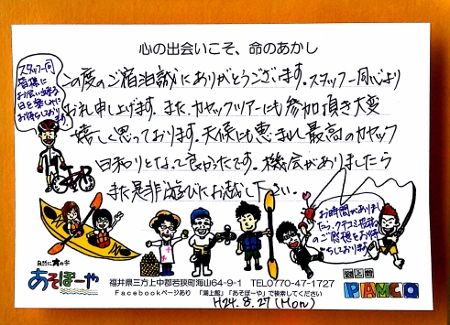 心の出会いこそ、命のあかし
この度のご宿泊誠にありがとうございます。スタッフ一同心より
お礼申し上げます。また、カヤックツアーにも参加頂き大変
嬉しく思っております。天候にも恵まれ最高のカヤック
日和りとなって良かったです。機会がありましたら
また是非遊びにお越し下さい。
スタッフ一同
皆様に
お会い出来る
日を楽しみに
お待ちしております
お時間がありまし
たら、クチコミ投稿
のご感想をお待
ちしております
自然に◎の字
あそぼーや
湖上館
PAMCO
福井県三方上中郡若狭町海山64-9-1 TEL0770-47-1727
Facebookページあり 「湖上館」「あそぼーや」で検索してください
H24.8.27(Mon)